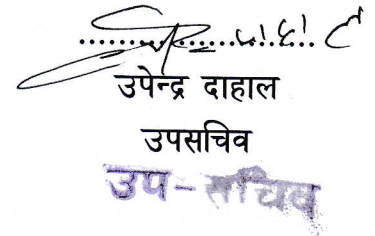 उपेन्द्र दाहाल
उपसचिव
उप-सचिव